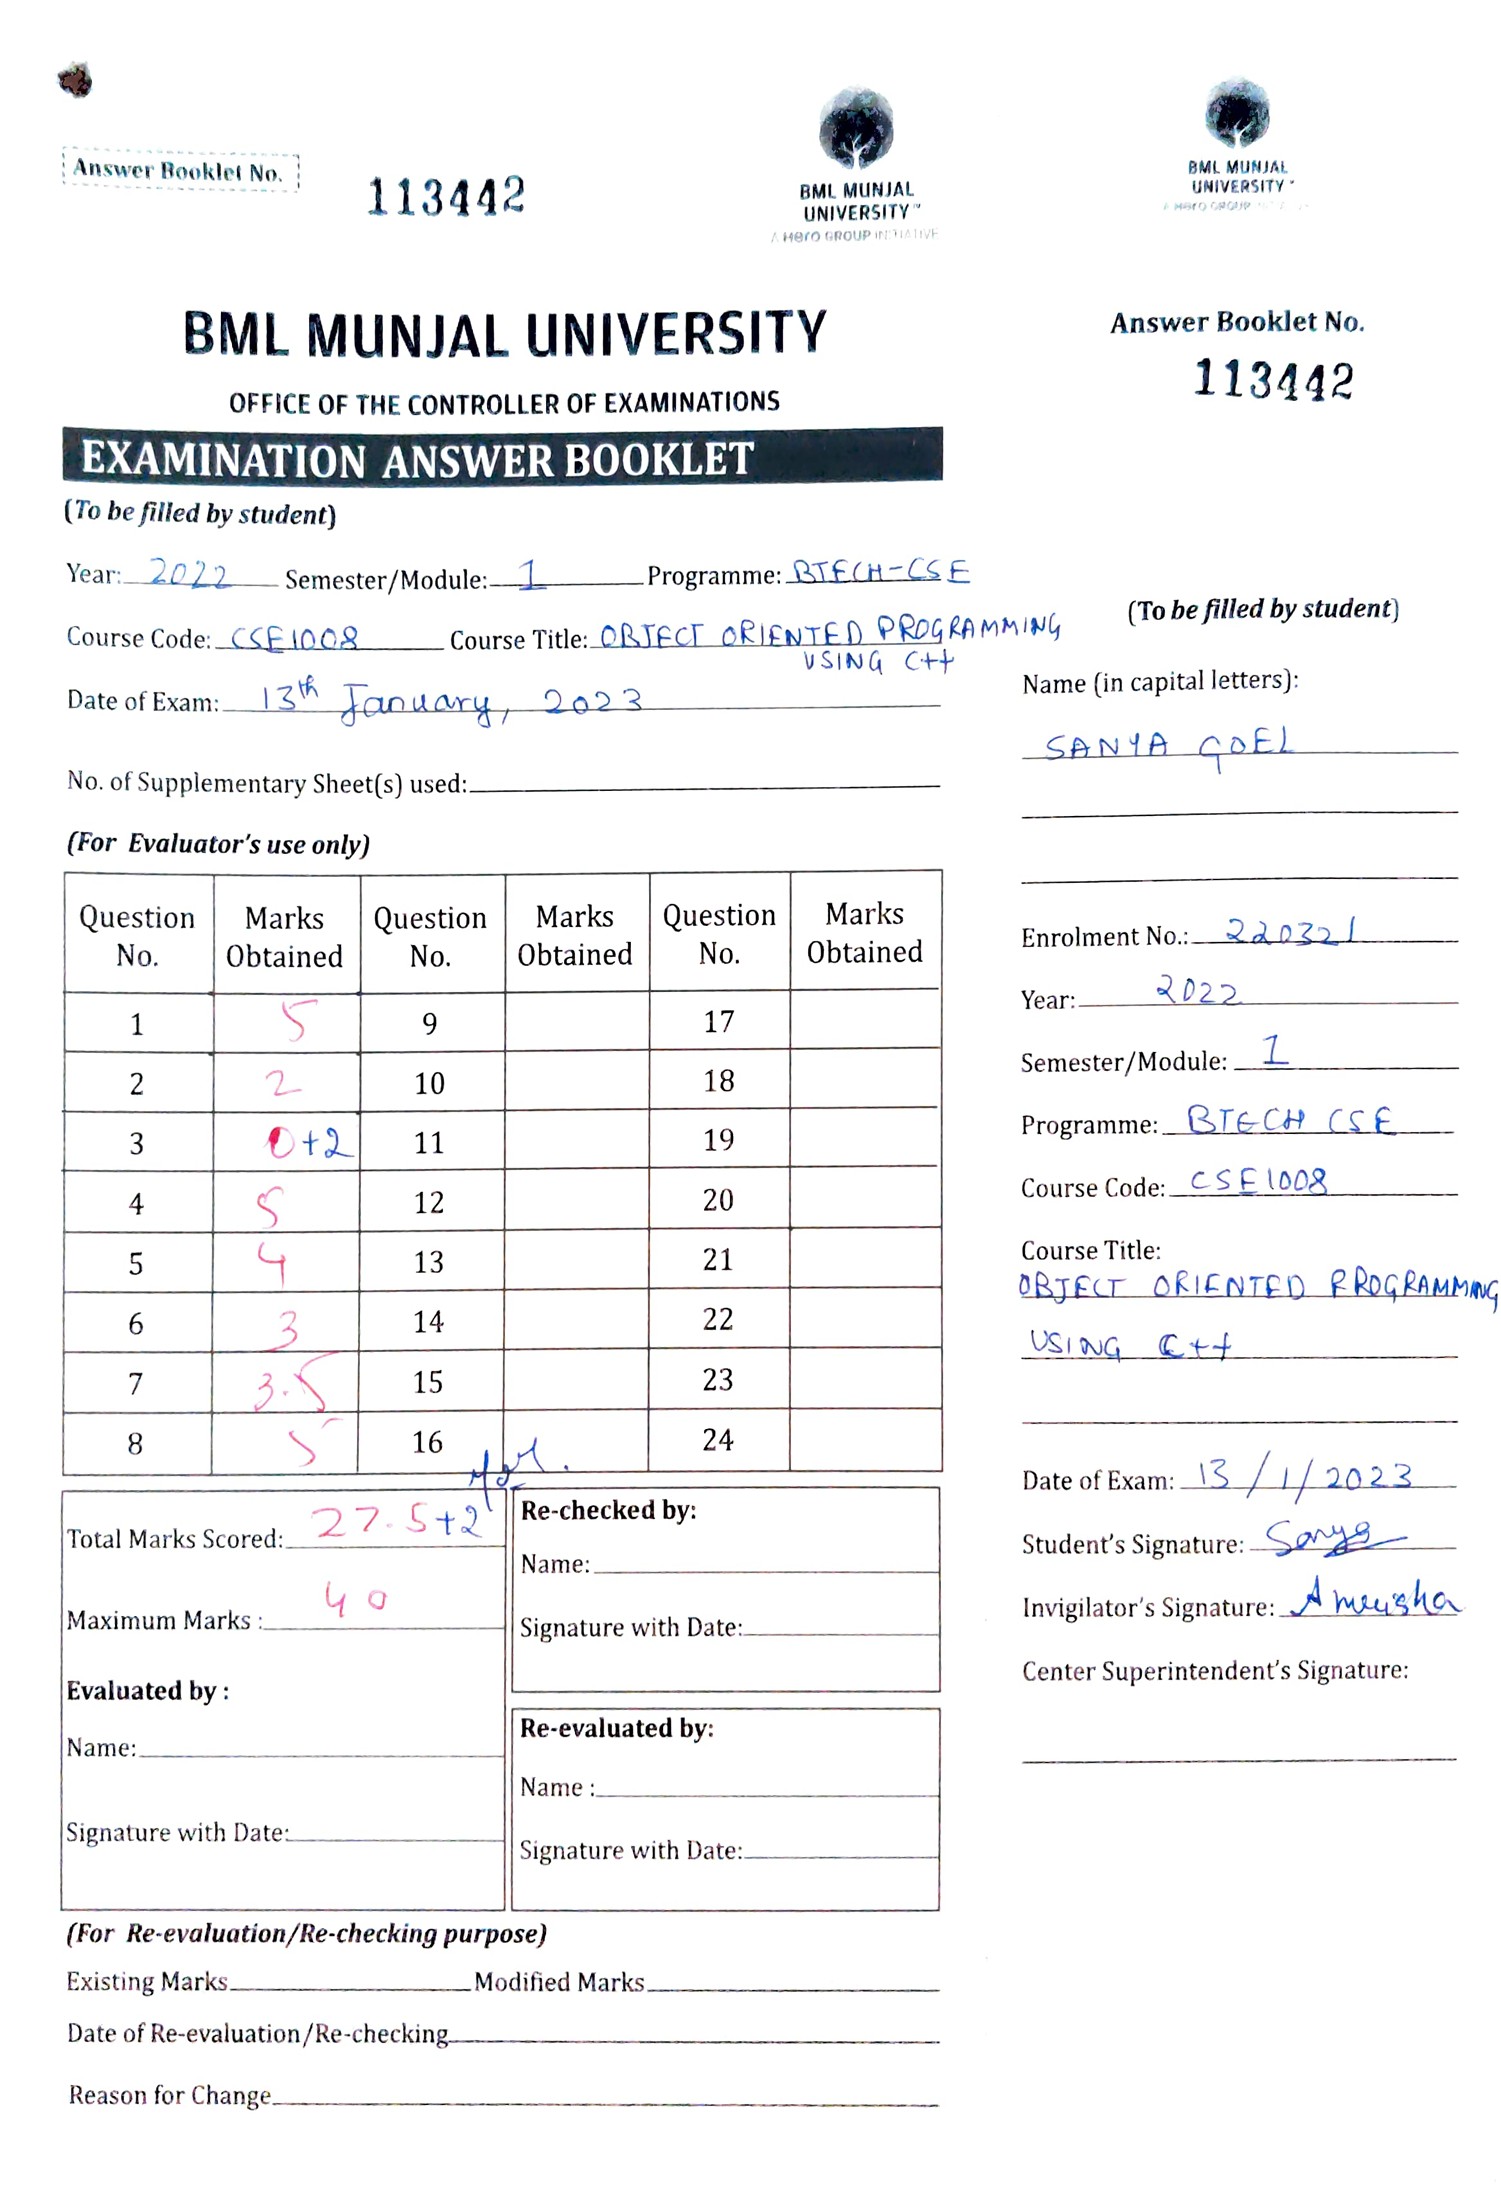 Answer Booklet No.
113442
BML MUNJAL
UNIVERSITY™
A Hero GROUP INITIATIVE
BML MUNJAL UNIVERSITY
OFFICE OF THE CONTROLLER OF EXAMINATIONS
EXAMINATION ANSWER BOOKLET
(To be filled by student)
Year: 2022 Semester/Module: 1 Programme: BTECH-CSE
Course Code: CSE1008 Course Title: OBJECT ORIENTED PROGRAMMING
USING C++
Date of Exam: 13th January, 2023
No. of Supplementary Sheet(s) used:
(For Evaluator's use only)
Question No. Marks Obtained Question No. Marks Obtained Question No. Marks Obtained
1 5 9 17
2 2 10 18
3 0+2 11 19
4 5 12 20
5 4 13 21
6 3 14 22
7 3.5 15 23
8 5 16 24
Total Marks Scored: 27.5+2
Maximum Marks : 40
Evaluated by :
Name:
Signature with Date:
Re-checked by:
Name:
Signature with Date:
Re-evaluated by:
Name :
Signature with Date:
(For Re-evaluation/Re-checking purpose)
Existing Marks Modified Marks
Date of Re-evaluation/Re-checking
Reason for Change
BML MUNJAL
UNIVERSITY™
A Hero GROUP
Answer Booklet No.
113442
(To be filled by student)
Name (in capital letters):
SANYA GOEL
Enrolment No.: 220321
Year: 2022
Semester/Module: 1
Programme: BTECH CSE
Course Code: CSE1008
Course Title:
OBJECT ORIENTED PROGRAMMING
USING C++
Date of Exam: 13/1/2023
Student's Signature: Sanya
Invigilator's Signature:
Center Superintendent's Signature: